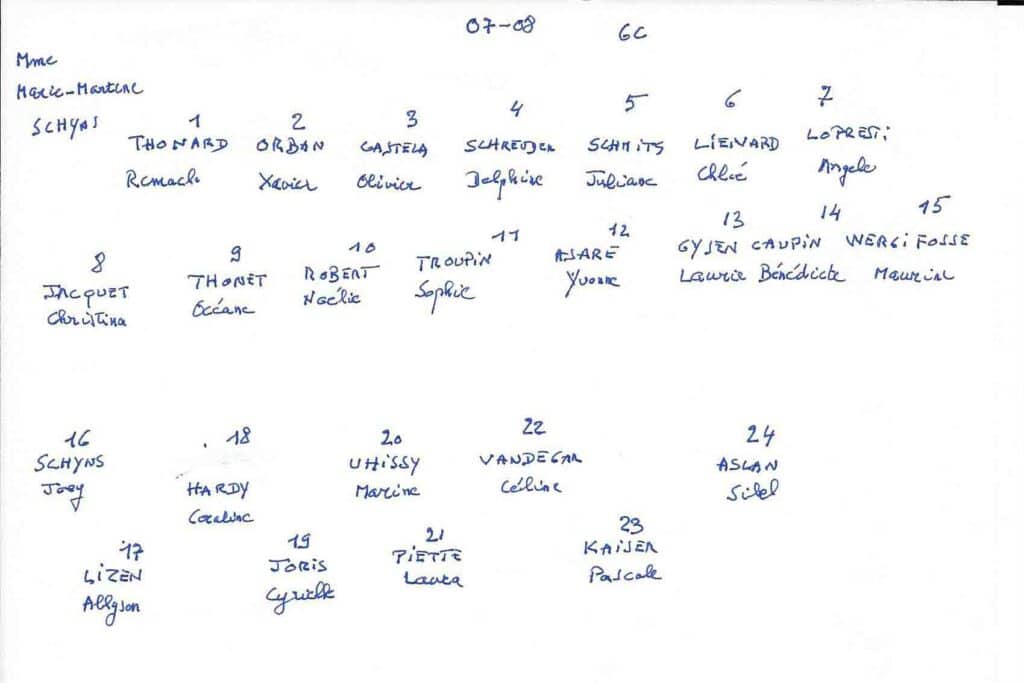 07-08 6C
Mme
Marie-Martine
SCHYNS
1 2 3 4 5 6 7
THONARD ORBAN CASTELA SCHREUDER SCHMITS LIENARD LOPRESTI
Romach Xavier Olivier Delphine Juliane Chloé Angelo
8 9 10 11 12 13 14 15
JACQUET THONET ROBERT TROUPIN ASARE GYSEN CAUPIN WERGIFOSSE
Christina Océane Noélie Sophie Yvonne Laurie Bénédicte Maurine
16 18 20 22 24
SCHYNS HARDY UHISSY VANDEGAR ASLAN
Joey Coraline Marine Céline Sibel
17 19 21 23
LIZEN JORIS PIETTE KAISER
Allyson Cyrielle Laura Pascale